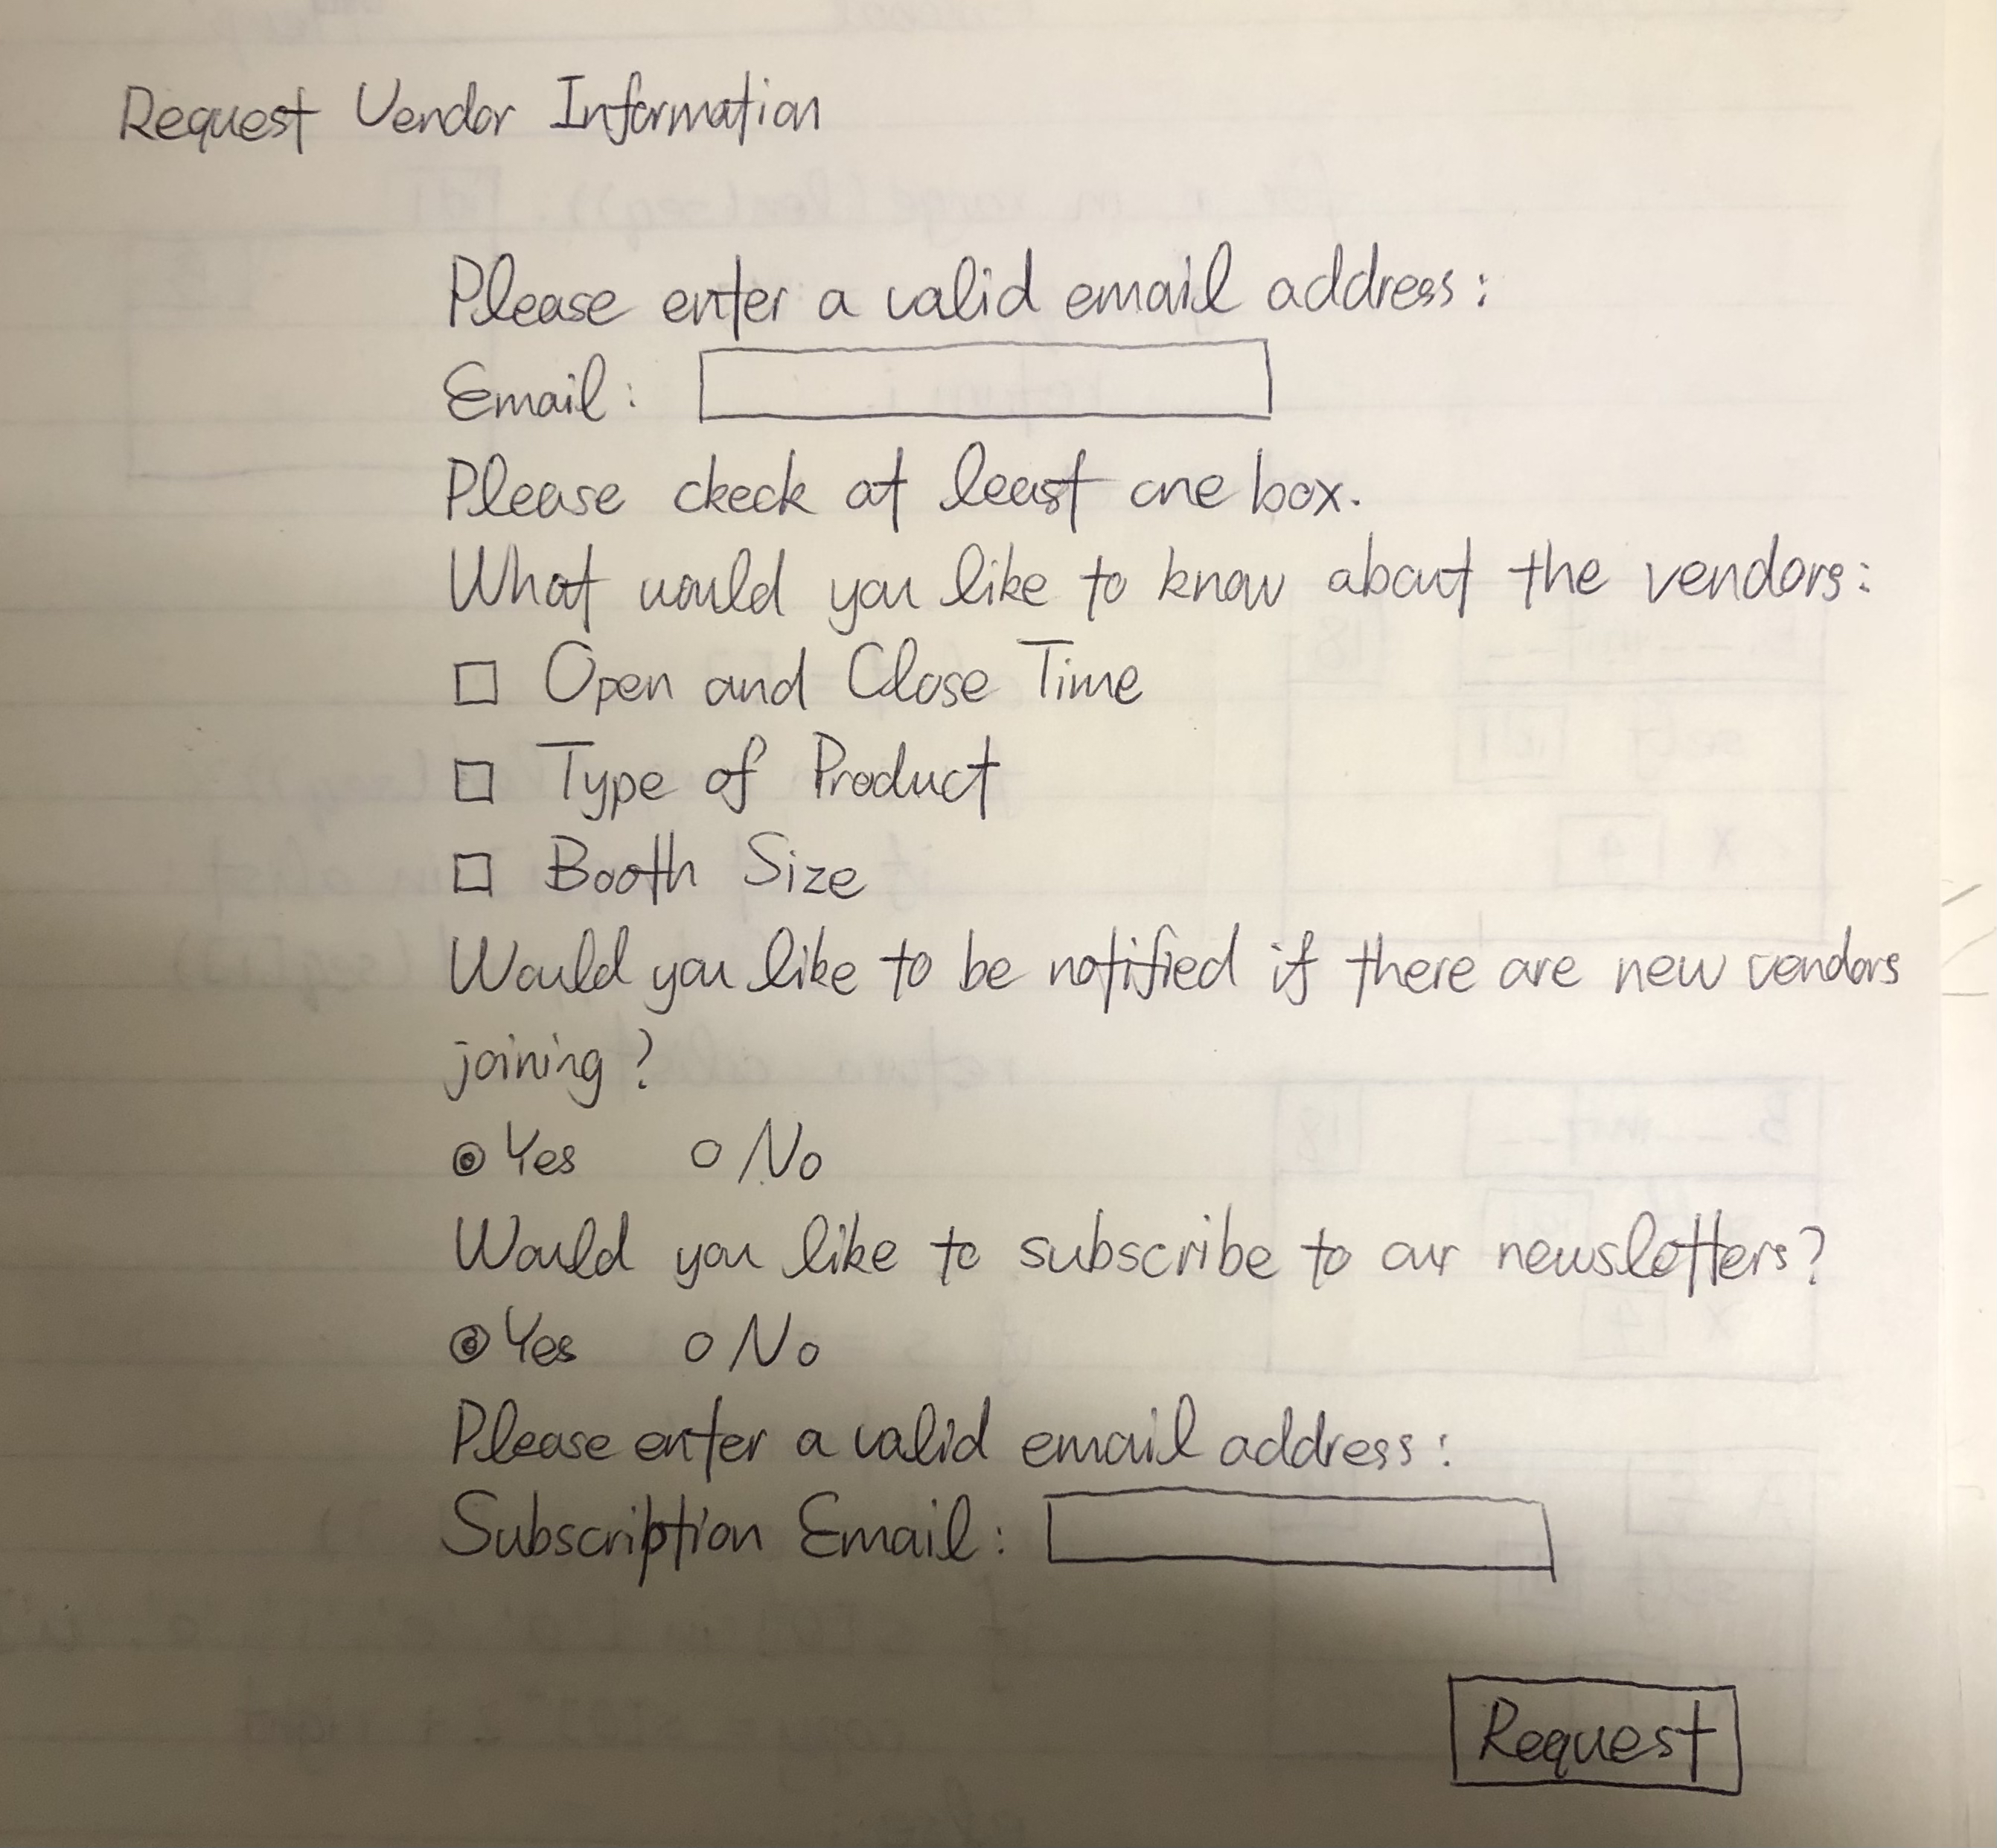 Request Vendor Information
Please enter a valid email address:
Email:
Please ckeck at least one box.
What would you like to know about the vendors:
Open and Close Time
Type of Product
Booth Size
Would you like to be notified if there are new vendors
joining?
Yes No
Would you like to subscribe to our newsletters?
Yes No
Please enter a valid email address:
Subscription Email:
Request